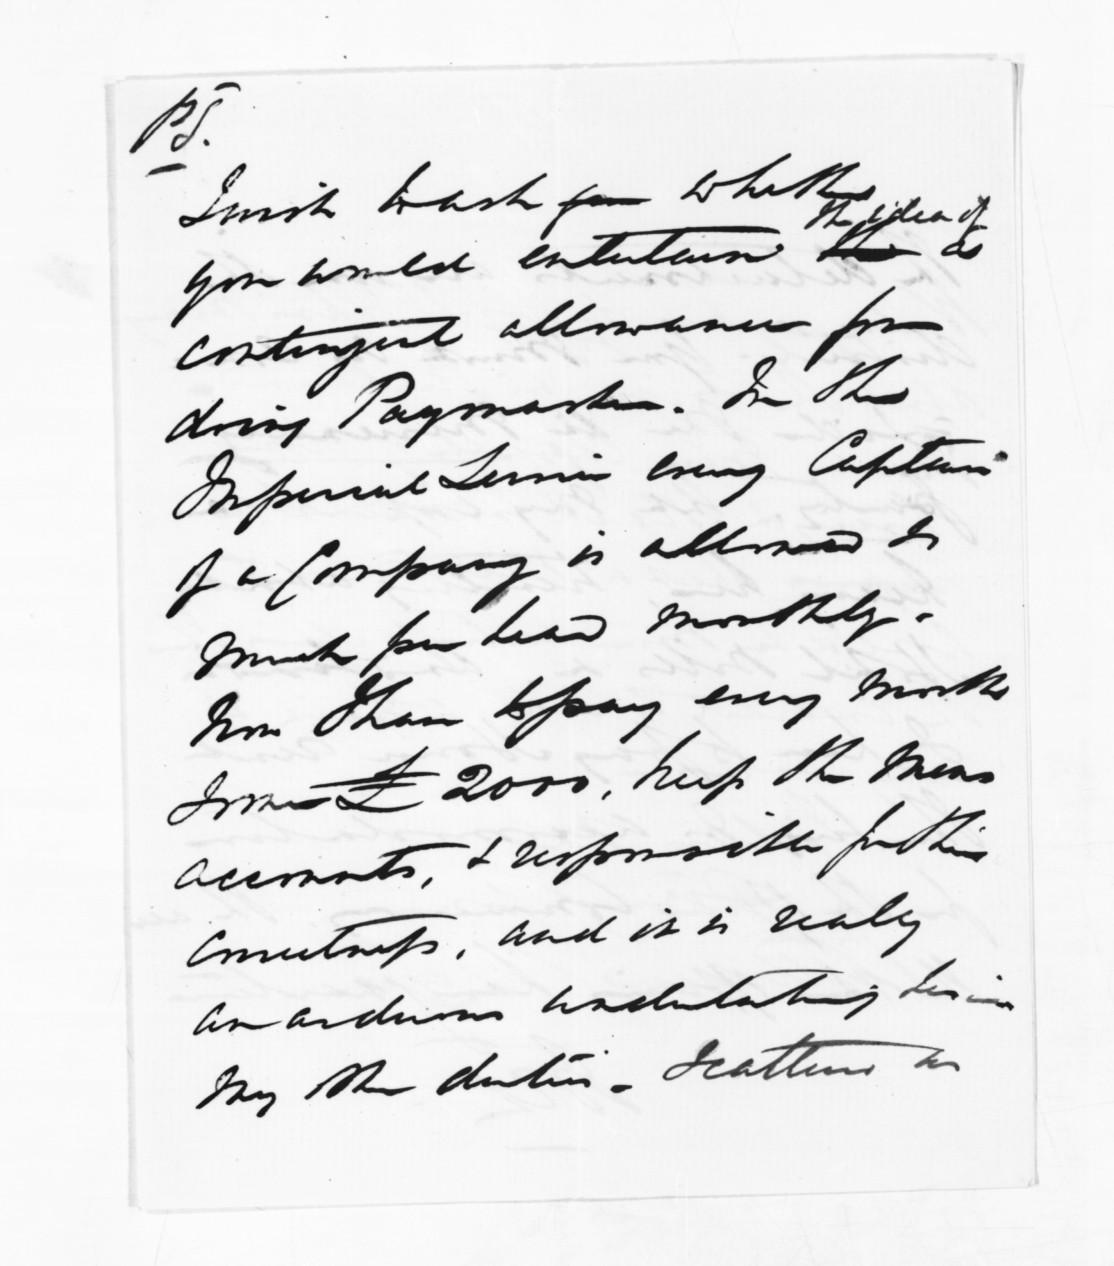 PS.
I wish to ask you whether
you would entertain the idea of a
contingent allowance for
doing Paymaster. In the
Imperial Service every Captain
of a Company is allowed so
much per head monthly.
Now I have to pay every month
some £2000, keep the mens
accounts, & responsible for their
correctness, and it is really
an arduous undertaking
my other duties. Scattered as